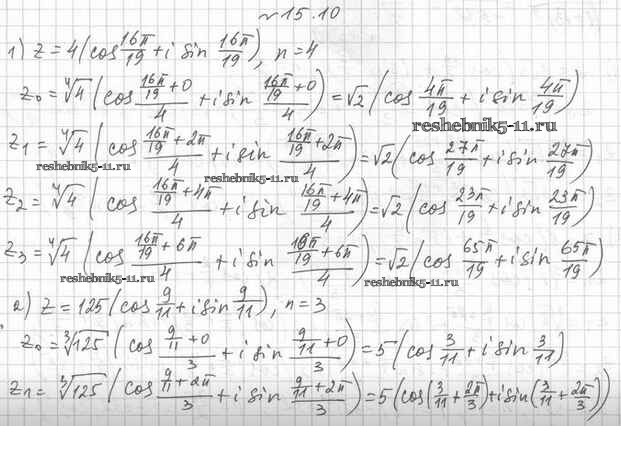 №15.10
1) z = 4(cos 16π/19 + i sin 16π/19), n=4
z₀ = ⁴√4 (cos (16π/19 + 0)/4 + i sin (16π/19 + 0)/4) = √2 (cos 4π/19 + i sin 4π/19)
reshebnik5-11.ru
z₁ = ⁴√4 (cos (16π/19 + 2π)/4 + i sin (16π/19 + 2π)/4) = √2 (cos 27π/19 + i sin 27π/19)
reshebnik5-11.ru reshebnik5-11.ru
z₂ = ⁴√4 (cos (16π/19 + 4π)/4 + i sin (16π/19 + 4π)/4) = √2 (cos 23π/19 + i sin 23π/19)
z₃ = ⁴√4 (cos (16π/19 + 6π)/4 + i sin (16π/19 + 6π)/4) = √2 (cos 65π/19 + i sin 65π/19)
reshebnik5-11.ru reshebnik5-11.ru
2) z = 125(cos 9/11 + i sin 9/11), n=3
z₀ = ³√125 (cos (9/11 + 0)/3 + i sin (9/11 + 0)/3) = 5 (cos 3/11 + i sin 3/11)
z₁ = ³√125 (cos (9/11 + 2π)/3 + i sin (9/11 + 2π)/3) = 5 (cos(3/11 + 2π/3) + i sin(3/11 + 2π/3))